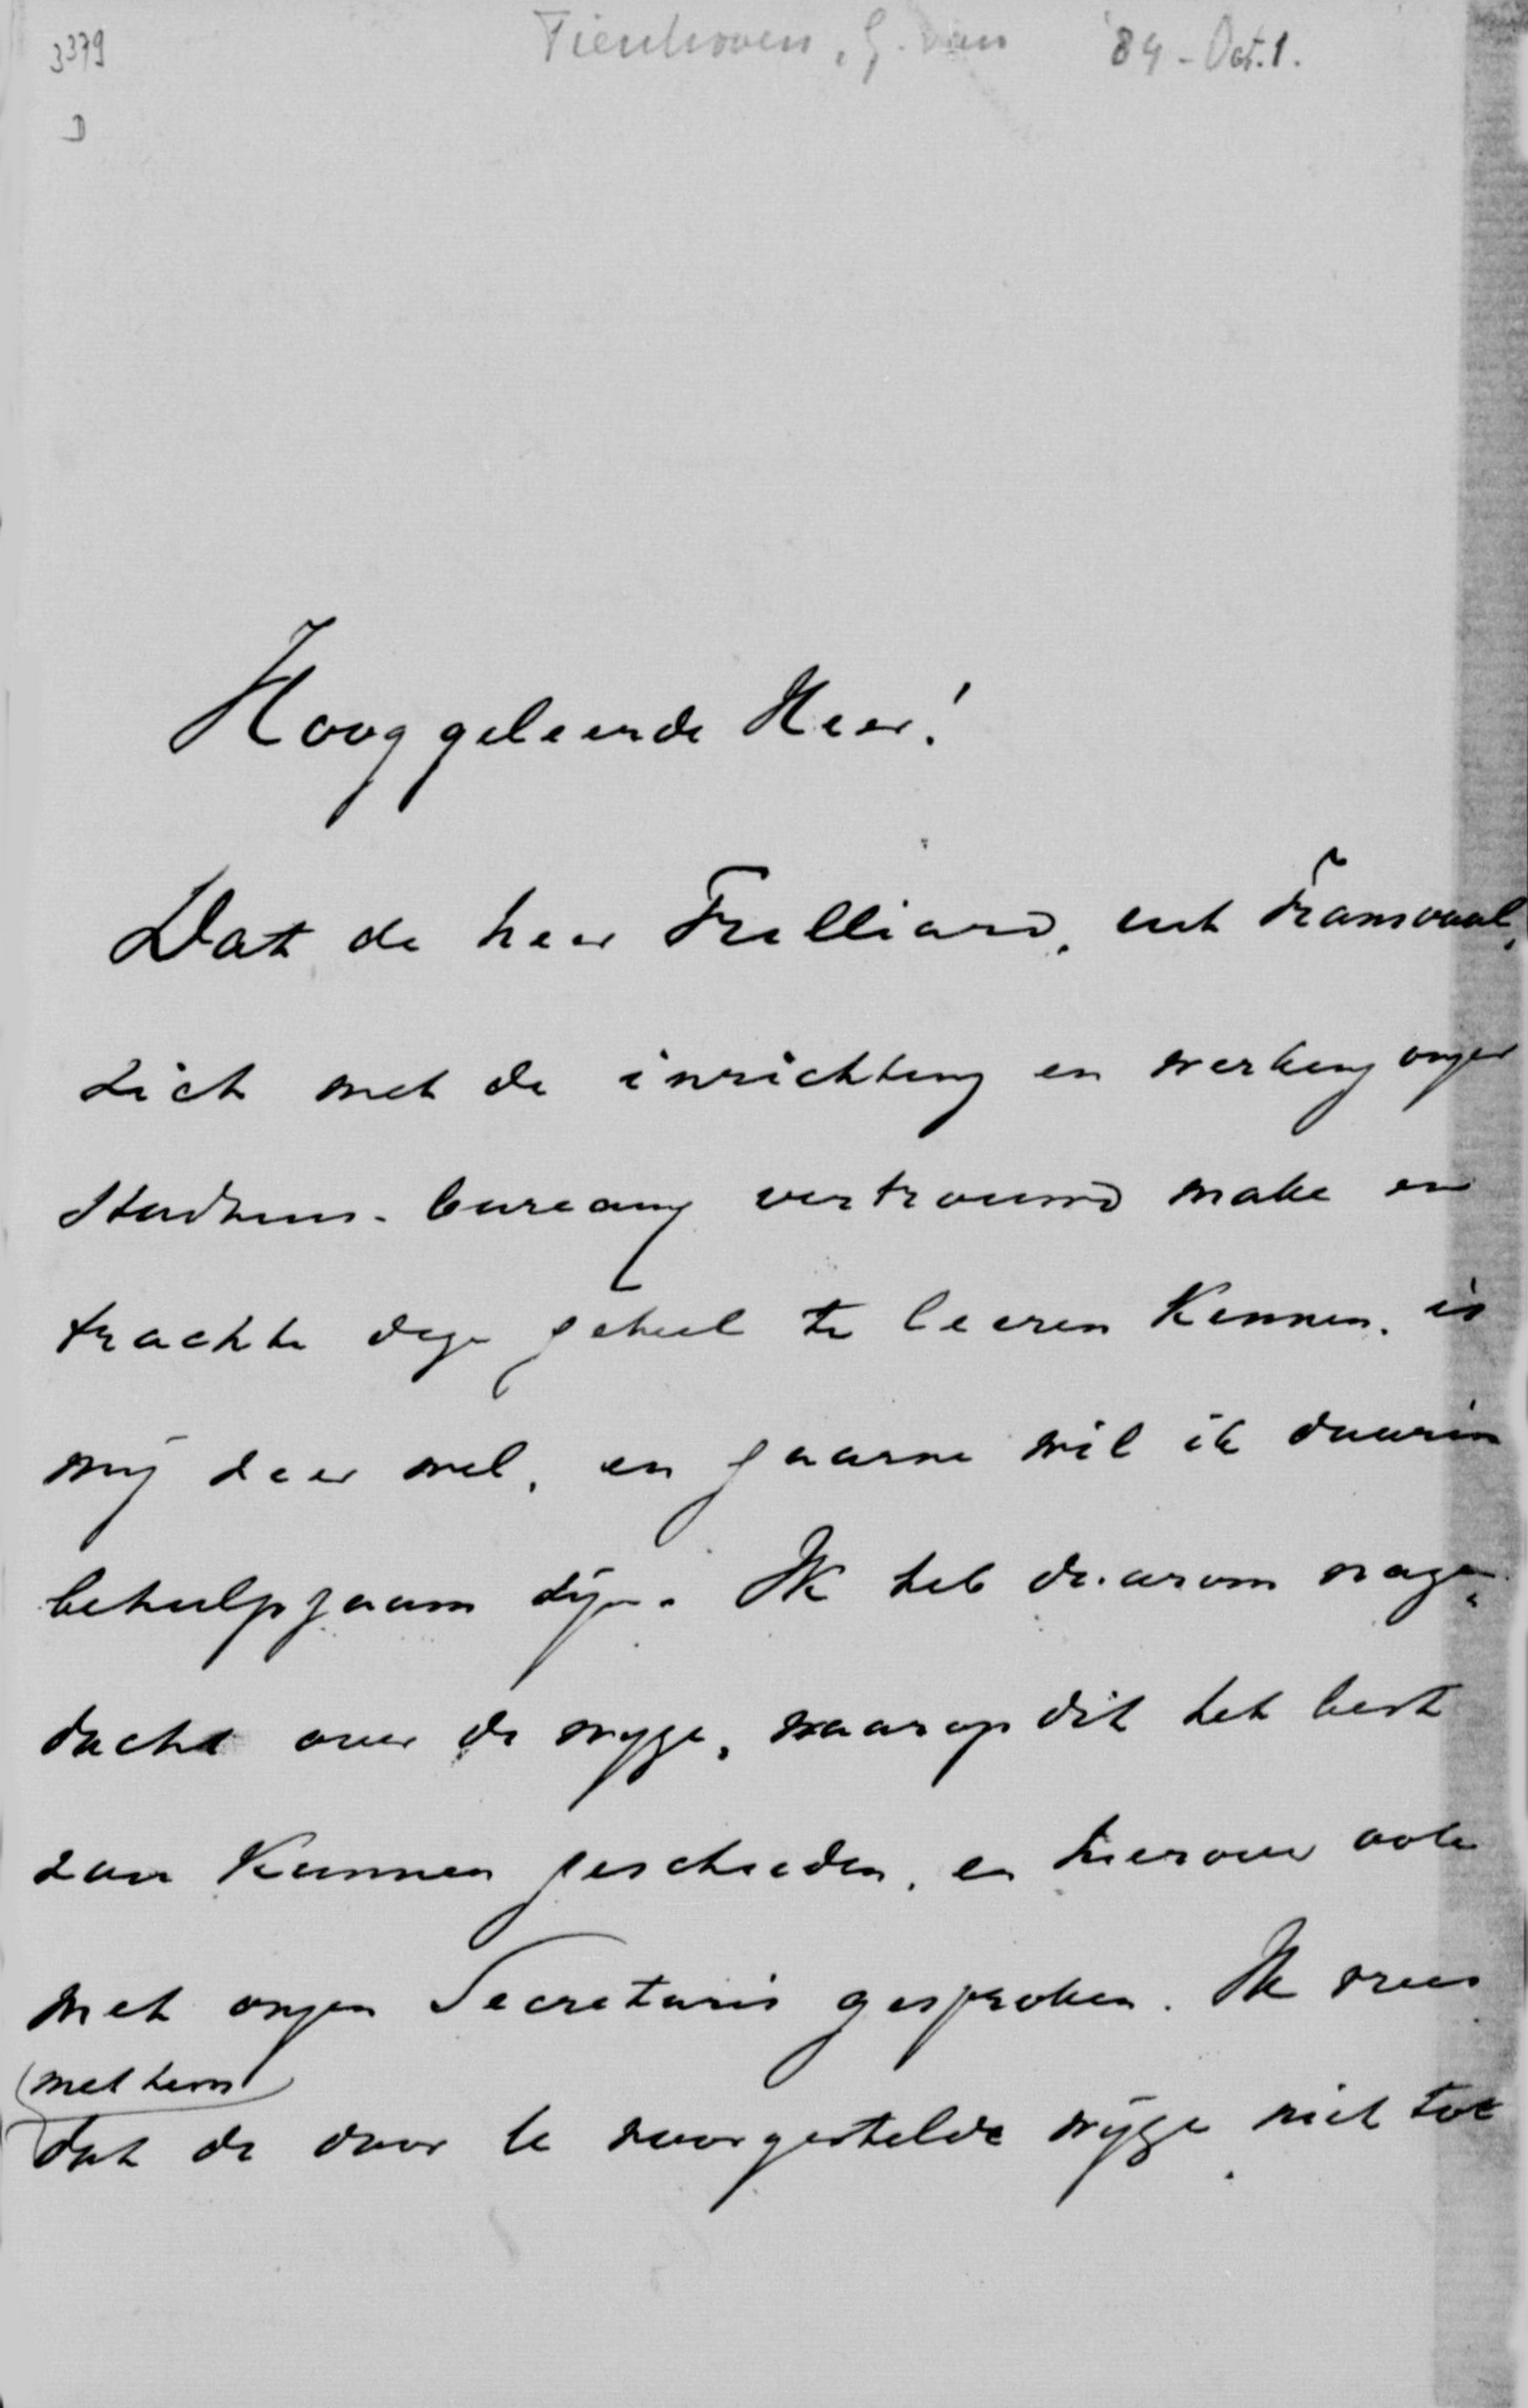 3379
Tienhoven, G. van '84 - Oct. 1.
D
Hooggeleerde Heer!
Dat de heer Trelliard, uit Transvaal,
zich met de inrichting en werking onzer
Stadhuis-bureaux vertrouwd make en
trachte deze geheel te leeren kennen, is
mij zeer wel, en gaarne wil ik daarin
behulpzaam zijn. Ik heb daarom nage-
dacht over de wijze, waarop dit het best
zou kunnen geschieden, en hierover ook
met onzen Secretaris gesproken. Ik vrees
met hem
dat de door U voorgestelde wijze niet tot